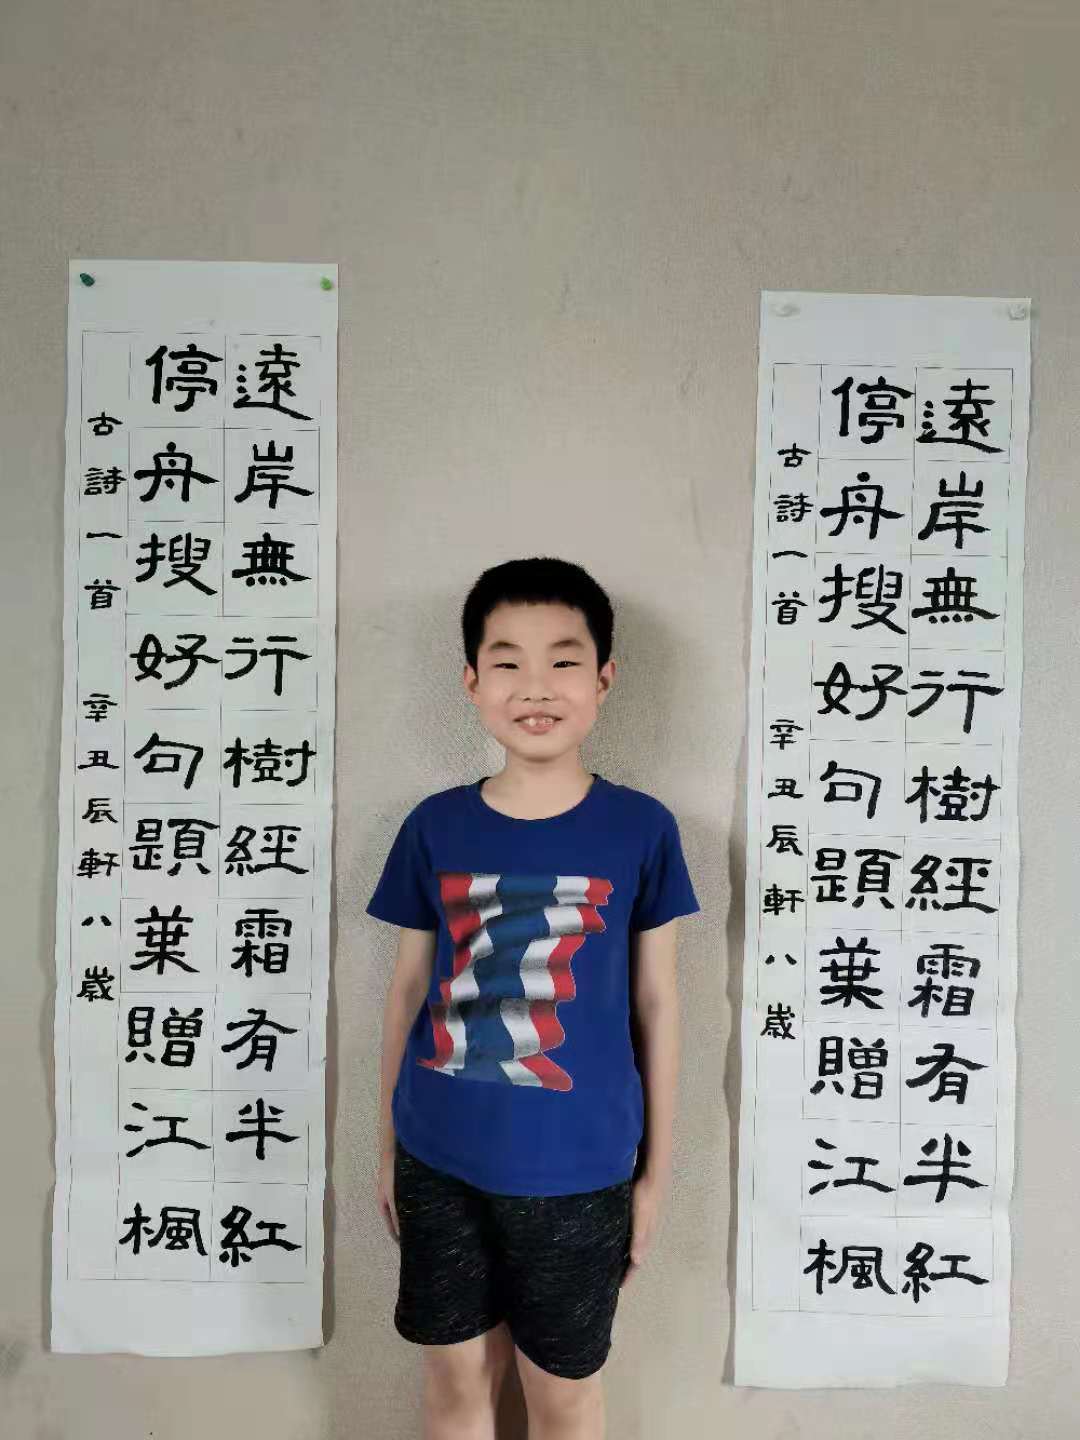 遠岸無行樹經霜有半紅
停舟搜好句題葉贈江楓
古詩一首 辛丑辰軒八歲
遠岸無行樹經霜有半紅
停舟搜好句題葉贈江楓
古詩一首 辛丑辰軒八歲